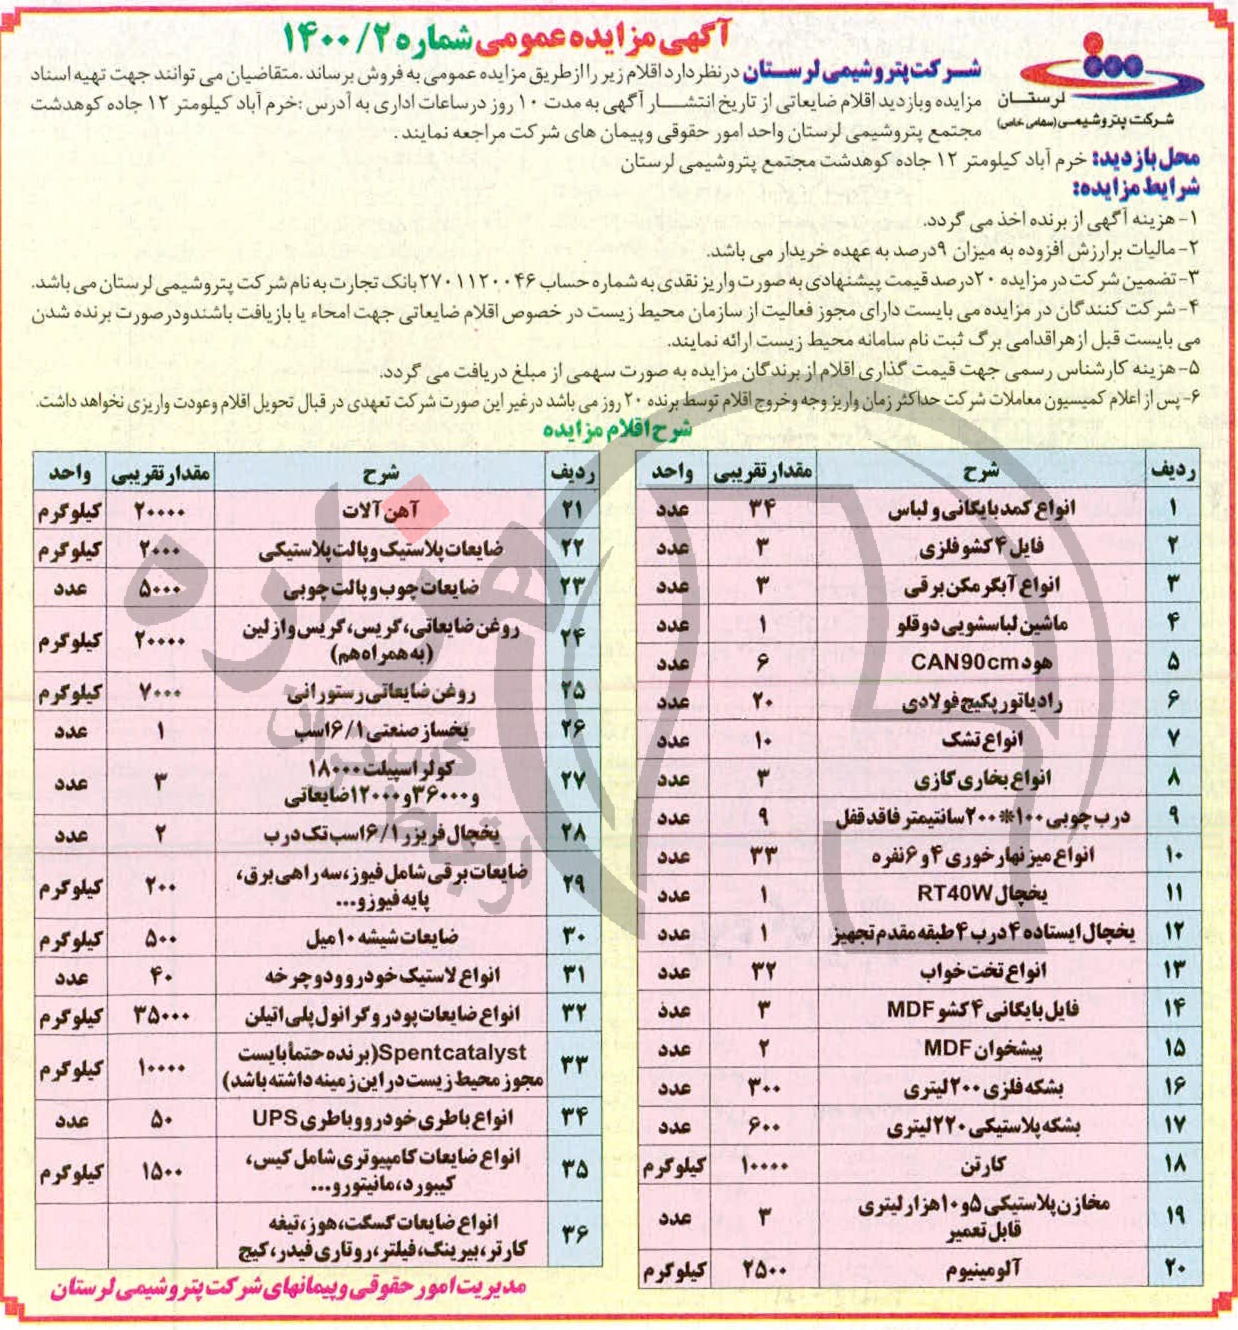 آگهی مزایده عمومی شماره ۱۴۰۰/۲
لرستان
شرکت پتروشیمی (سهامی خاص)
شرکت پتروشیمی لرستان در نظر دارد اقلام زیر را از طریق مزایده عمومی به فروش برساند. متقاضیان می توانند جهت تهیه اسناد
مزایده وبازدید اقلام ضایعاتی از تاریخ انتشار آگهی به مدت ۱۰ روز در ساعات اداری به آدرس: خرم آباد کیلومتر ۱۲ جاده کوهدشت
مجتمع پتروشیمی لرستان واحد امور حقوقی وپیمان های شرکت مراجعه نمایند.
محل بازدید: خرم آباد کیلومتر ۱۲ جاده کوهدشت مجتمع پتروشیمی لرستان
شرایط مزایده:
۱- هزینه آگهی از برنده اخذ می گردد.
۲- مالیات برارزش افزوده به میزان ۹درصد به عهده خریدار می باشد.
۳- تضمین شرکت در مزایده ۲۰درصد قیمت پیشنهادی به صورت واریز نقدی به شماره حساب ۲۷۰۱۱۲۰۰۴۶ بانک تجارت به نام شرکت پتروشیمی لرستان می باشد.
۴- شرکت کنندگان در مزایده می بایست دارای مجوز فعالیت از سازمان محیط زیست در خصوص اقلام ضایعاتی جهت امحاء یا بازیافت باشندودرصورت برنده شدن
می بایست قبل ازهراقدامی برگ ثبت نام سامانه محیط زیست ارائه نمایند.
۵- هزینه کارشناس رسمی جهت قیمت گذاری اقلام از برندگان مزایده به صورت سهمی از مبلغ دریافت می گردد.
۶- پس از اعلام کمیسیون معاملات شرکت حداکثر زمان واریز وجه وخروج اقلام توسط برنده ۲۰ روز می باشد درغیر این صورت شرکت تعهدی در قبال تحویل اقلام وعودت واریزی نخواهد داشت.
شرح اقلام مزایده
ردیف شرح مقدار تقریبی واحد
۱ انواع کمد بایگانی و لباس ۳۴ عدد
۲ فایل ۴ کشو فلزی ۳ عدد
۳ انواع آبگرمکن برقی ۳ عدد
۴ ماشین لباسشویی دوقلو ۱ عدد
۵ هود CAN90cm ۶ عدد
۶ رادیاتور پکیج فولادی ۲۰ عدد
۷ انواع تشک ۱۰ عدد
۸ انواع بخاری گازی ۳ عدد
۹ درب چوبی ۱۰۰*۲۰۰سانتیمتر فاقد قفل ۹ عدد
۱۰ انواع میز نهارخوری ۴ و ۶ نفره ۳۳ عدد
۱۱ یخچال RT40W ۱ عدد
۱۲ یخچال ایستاده ۴ درب ۴ طبقه مقدم تجهیز ۱ عدد
۱۳ انواع تخت خواب ۳۲ عدد
۱۴ فایل بایگانی ۴ کشو MDF ۳ عدد
۱۵ پیشخوان MDF ۲ عدد
۱۶ بشکه فلزی ۲۰۰ لیتری ۳۰۰ عدد
۱۷ بشکه پلاستیکی ۲۲۰ لیتری ۶۰۰ عدد
۱۸ کارتن ۱۰۰۰۰ کیلوگرم
۱۹ مخازن پلاستیکی ۵و۱۰هزار لیتری
قابل تعمیر ۳ عدد
۲۰ آلومینیوم ۲۵۰۰ کیلوگرم
ردیف شرح مقدار تقریبی واحد
۲۱ آهن آلات ۲۰۰۰۰ کیلوگرم
۲۲ ضایعات پلاستیک و پالت پلاستیکی ۲۰۰۰ کیلوگرم
۲۳ ضایعات چوب و پالت چوبی ۵۰۰۰ عدد
۲۴ روغن ضایعاتی، گریس، گریس وازلین
(به همراه هم) ۲۰۰۰۰ کیلوگرم
۲۵ روغن ضایعاتی رستورانی ۷۰۰۰ کیلوگرم
۲۶ یخساز صنعتی ۱/۶اسب ۱ عدد
۲۷ کولر اسپیلت ۱۸۰۰۰
و۳۶۰۰۰و۱۲۰۰۰ضایعاتی ۳ عدد
۲۸ یخچال فریزر ۱/۶اسب تک درب ۲ عدد
۲۹ ضایعات برقی شامل فیوز، سه راهی برق،
پایه فیوزو... ۲۰۰ کیلوگرم
۳۰ ضایعات شیشه ۱۰میل ۵۰۰ کیلوگرم
۳۱ انواع لاستیک خودرو ودوچرخه ۴۰ عدد
۳۲ انواع ضایعات پودر و گرانول پلی اتیلن ۳۵۰۰۰ کیلوگرم
۳۳ Spentcatalyst(برنده حتماً بایست
مجوز محیط زیست در این زمینه داشته باشد) ۱۰۰۰۰ کیلوگرم
۳۴ انواع باطری خودرو وباطری UPS ۵۰ عدد
۳۵ انواع ضایعات کامپیوتری شامل کیس،
کیبورد، مانیتورو... ۱۵۰۰ کیلوگرم
۳۶ انواع ضایعات گسگت، هوز، تیغه
کارتر، بیرینگ، فیلتر، روتاری فیدر، کیج
مدیریت امور حقوقی وپیمانهای شرکت پتروشیمی لرستان